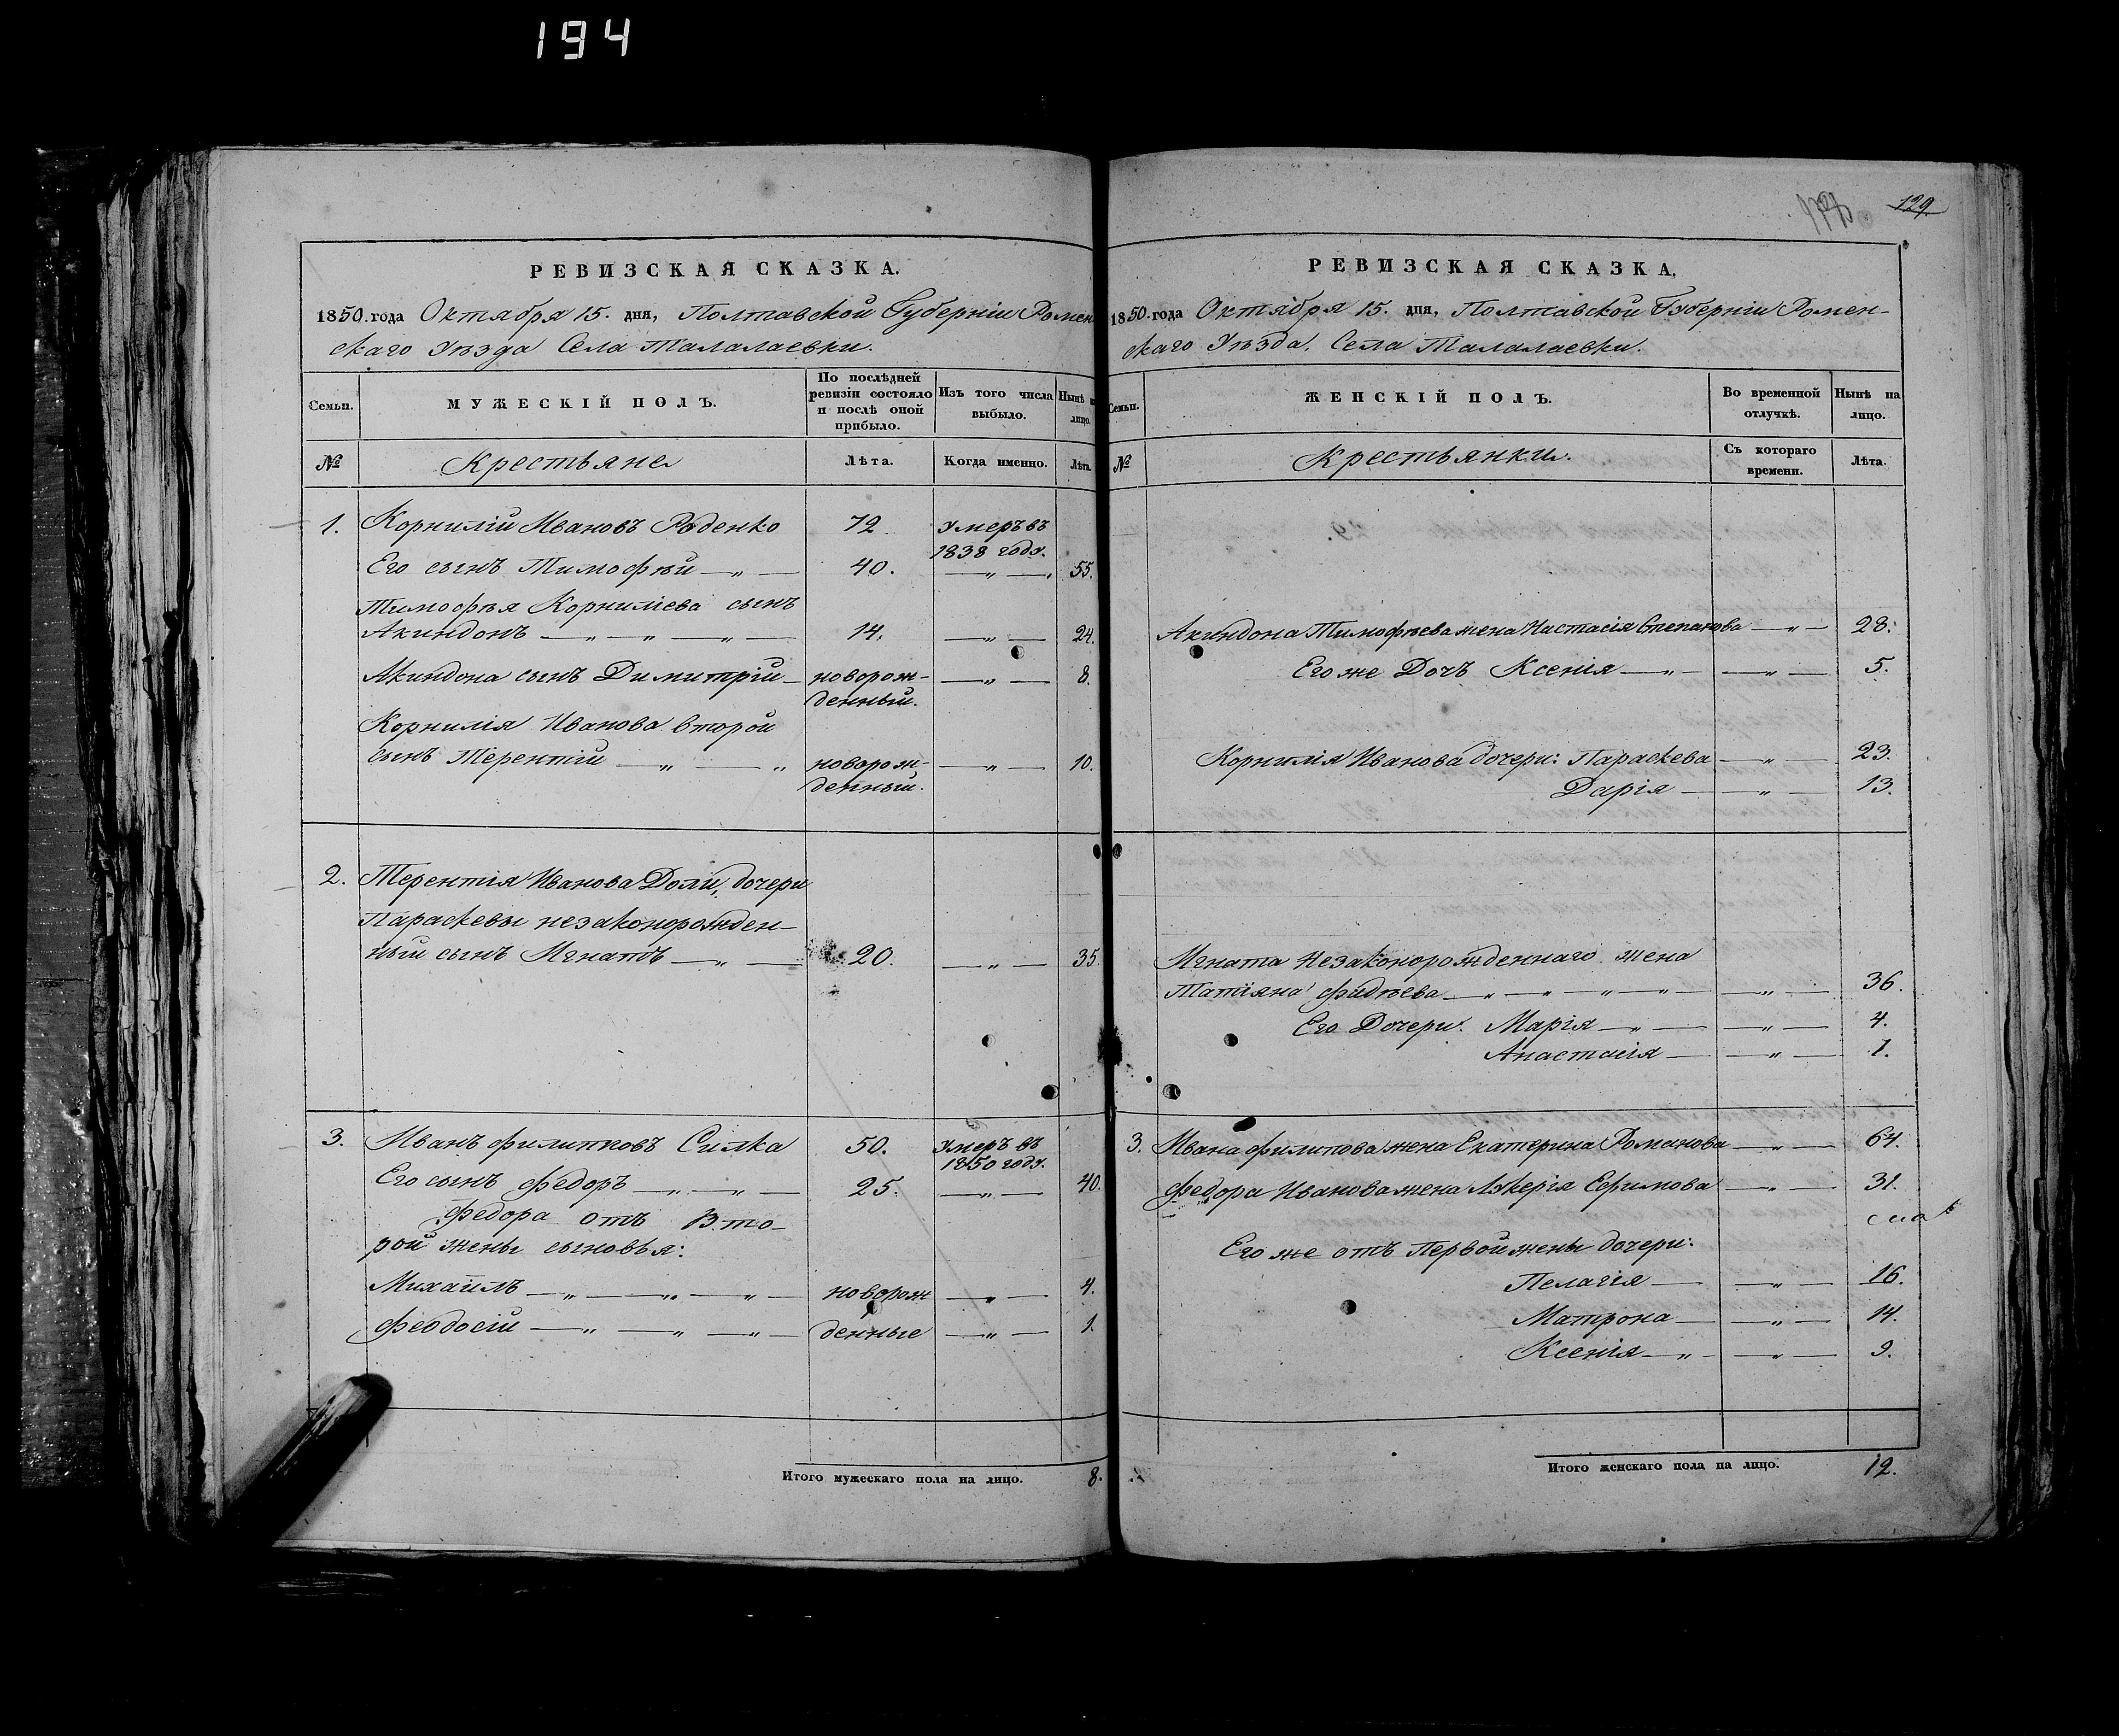 194
129
РЕВИЗСКАЯ СКАЗКА.
1850. года Октября 15. дня, Полтавской Губерніи Ромен
скаго Уѣзда Села Талалаевки.
Семьи.
МУЖЕСКІЙ ПОЛЪ.
По послѣдней
ревизіи состояло
и послѣ оной
прибыло.
Изъ того числа
выбыло.
Нынѣ н
лицо.
№
Крестьяне
Лѣта.
Когда именно.
Лѣта.
1. Корнилій Ивановъ Роденко 72 Умеръ въ
1838 году.
Его сынъ Тимофѣй — „ — 40. — „ — 55.
Тимофѣя Корниліева сынъ
Акиндонъ — „ — „ — „ — 14. — „ — 24.
Акиндона сынъ Димитрій — новорож- — „ — 8.
денный.
Корнилія Иванова второй
сынъ Терентій — „ — „ новорож- — „ — 10.
денный.
2. Терентія Иванова Доли, дочери
Параскевы незаконорожден-
ный сынъ Игнатъ — „ — 20. — „ — 35.
3. Иванъ Филипповъ Силка 50. Умеръ въ
1850 году.
Его сынъ Федоръ — „ — „ — 25. — „ — 40.
Федора отъ Вто-
рой жены сыновья:
Михаилъ — „ — „ — „ — новорож — „ — 4.
Феодосій — „ — „ — „ — денные — „ — 1.
Итого мужескаго пола на лицо. 8.
РЕВИЗСКАЯ СКАЗКА,
1850. года Октября 15. дня, Полтавской Губерніи Ромен-
скаго Уѣзда. Села Талалаевки.
Семьи.
ЖЕНСКІЙ ПОЛЪ.
Во временной
отлучкѣ.
Нынѣ на
лицо.
№
Крестьянки.
Съ котораго
времени.
Лѣта.
Акиндона Тимофѣева жена Настасія Степанова — „ — 28.
Его же Дочъ Ксенія — „ — — „ — 5.
Корнилія Иванова дочери: Параскева — „ — 23.
Дарія — „ — 13.
Игната Незаконорожденнаго жена
Татіяна Фадѣева — „ — „ — „ — „ — — „ — 36.
Его Дочери: Марія — „ — — „ — 4.
Анастасія — — „ — 1.
3. Ивана Филипова жена Екатерина Романова — „ — 64.
Федора Иванова жена Лукерія Ефимова — „ — 31.
Его же отъ Первой жены дочери:
Пелагія — — „ — 16.
Матрона — — „ — 14.
Ксенія — „ — — „ — 9.
Итого женскаго пола на лицо. 12.